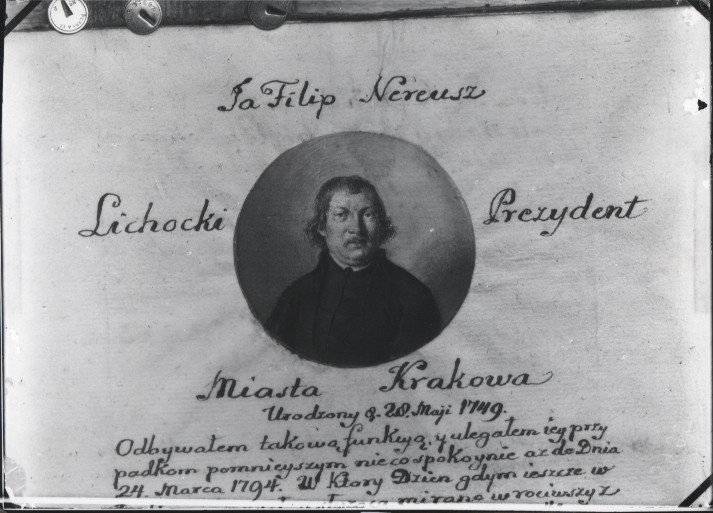 Ja Filip Nereusz
Lichocki Prezydent
Miasta Krakowa
Urodzony d. 28. Maji 1749.
Odbywałem takową funkcyą, y ulegałem iey przy
padkom pomnieyszym nieco spokoynie az do Dnia
24. Marca 1794. W Ktory Dzien gdym ieszcze w
mirano wrociwszy z